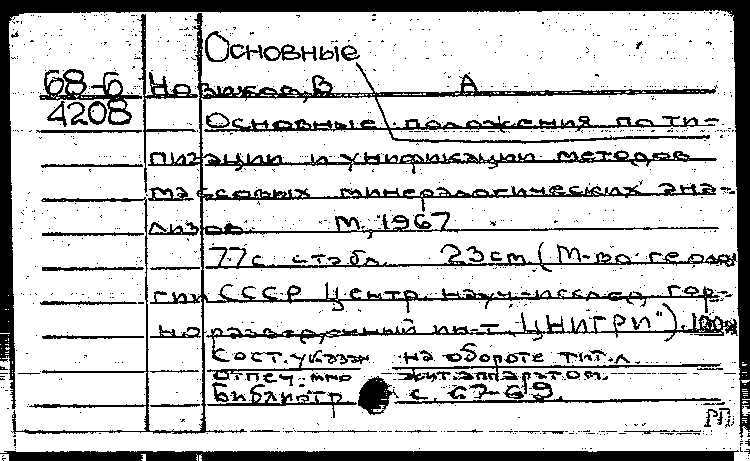 Основные
68-6 Новиков, В А
4208 Основные положения по ти-
пизации и унификации методов
массовых минералогических ана-
лизов М, 1967
77с. с табл. 23cm (М-во геоло-
гии СССР Центр. науч-исслед. гор-
норазведочный ин-т „ЦНИГРИ").
Сост. указан на обороте тит. л.
Отпеч. множит. аппаратом.
Библиогр с. 67-69.
РП